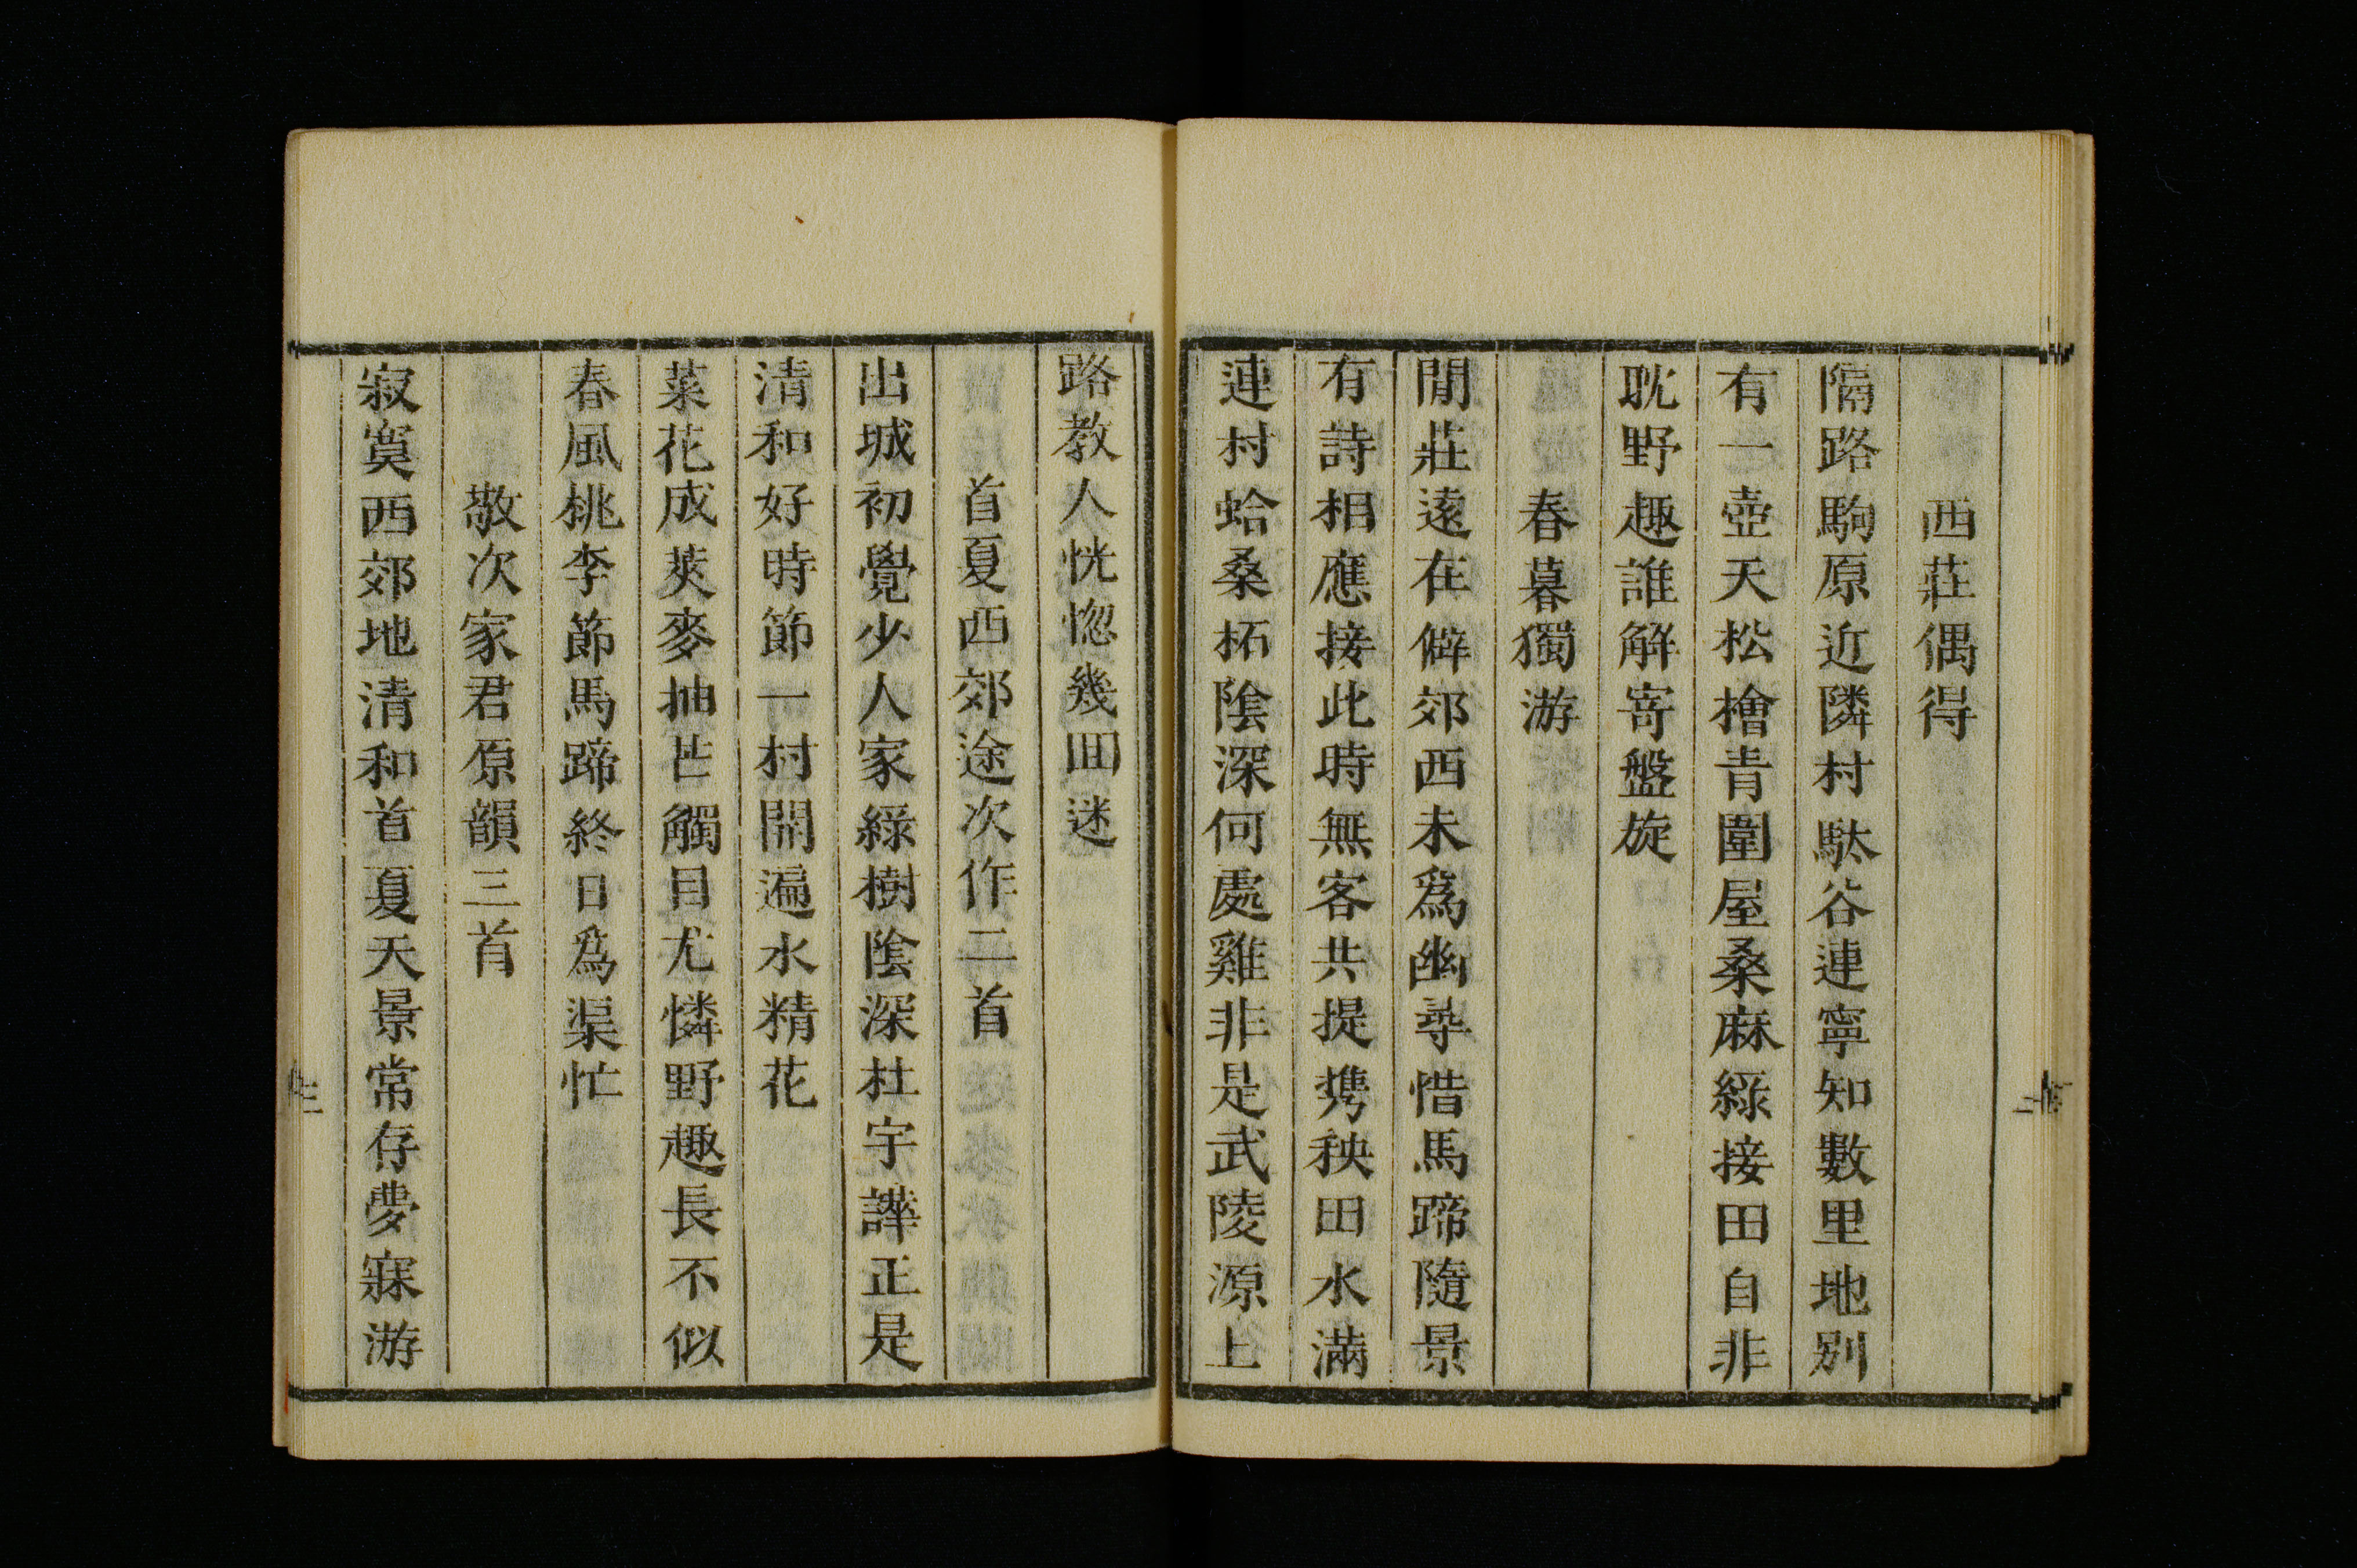 西莊偶得
隔路駒原近隣村馱谷連寧知數里地別
有一壺天松檜青圍屋桑麻綠接田自非
耽野趣誰解寄盤旋
春暮獨游
閒莊遠在僻郊西未爲幽尋惜馬蹄隨景
有詩相應接此時無客共提携秧田水滿
連村蛤桑柘陰深何處雞非是武陵源上
路教人恍惚幾回迷
首夏西郊途次作二首
出城初覺少人家綠樹陰深杜宇譁正是
清和好時節一村開遍水精花
菜花成莢麥抽芒觸目尤憐野趣長不似
春風桃李節馬蹄終日爲渠忙
敬次家君原韻三首
寂寞西郊地清和首夏天景常存夢寐游